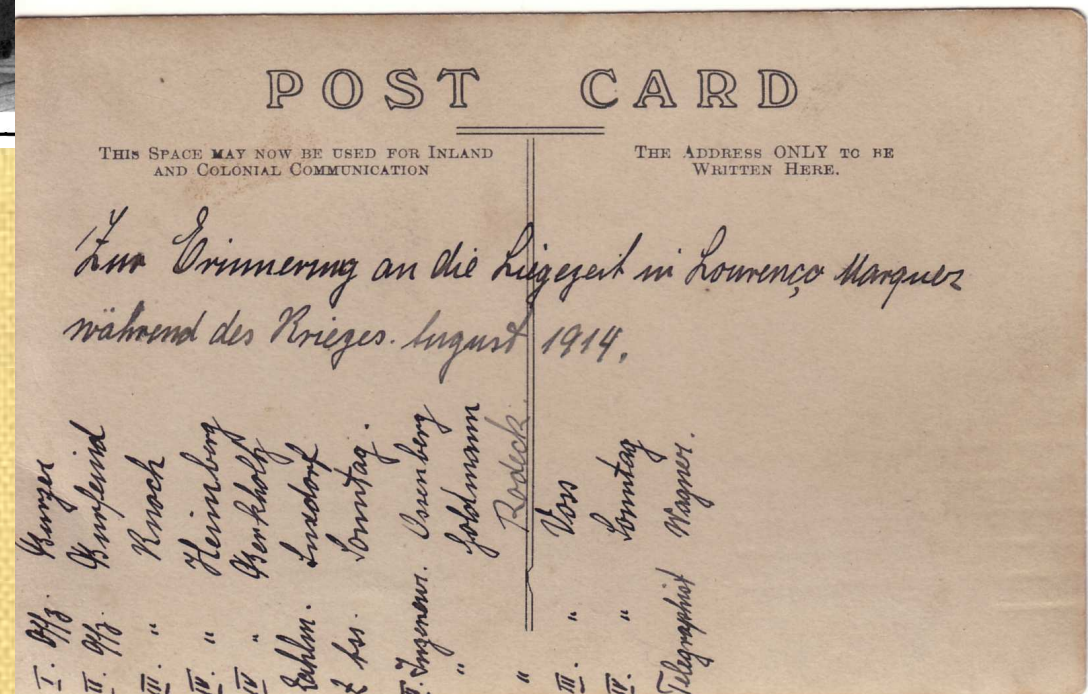 POST CARD
THIS SPACE MAY NOW BE USED FOR INLAND
AND COLONIAL COMMUNICATION
THE ADDRESS ONLY TO BE
WRITTEN HERE.
Zur Erinnerung an die Liegezeit in Lourenço Marquez
während des Krieges. August 1914.
I. Offz.
II. Offz. Burfeind
III. " Knoch
IV. " Heimberg
IV " Berkholz
Zahlm. Luxdorf
Z. Ass. Sonntag.
II. Ingenieur. Ossenberg
" Goldmann
" Rodeck.
III. " Voss
IV. " Sonntag
Telegraphist Wagner.